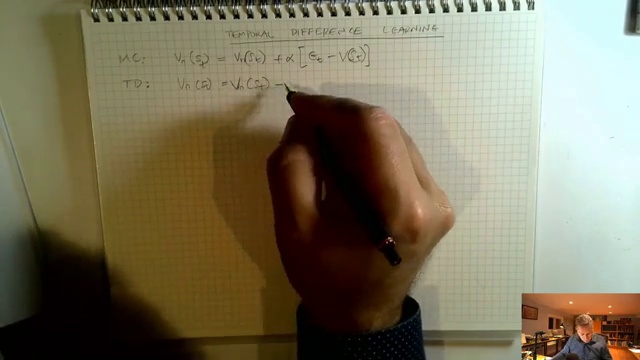 TEMPORAL DIFFERENCE LEARNING
MC: Vπ(St) = Vπ(St) + α [Gt − V(St)]
TD: Vπ(St) = Vπ(St) +